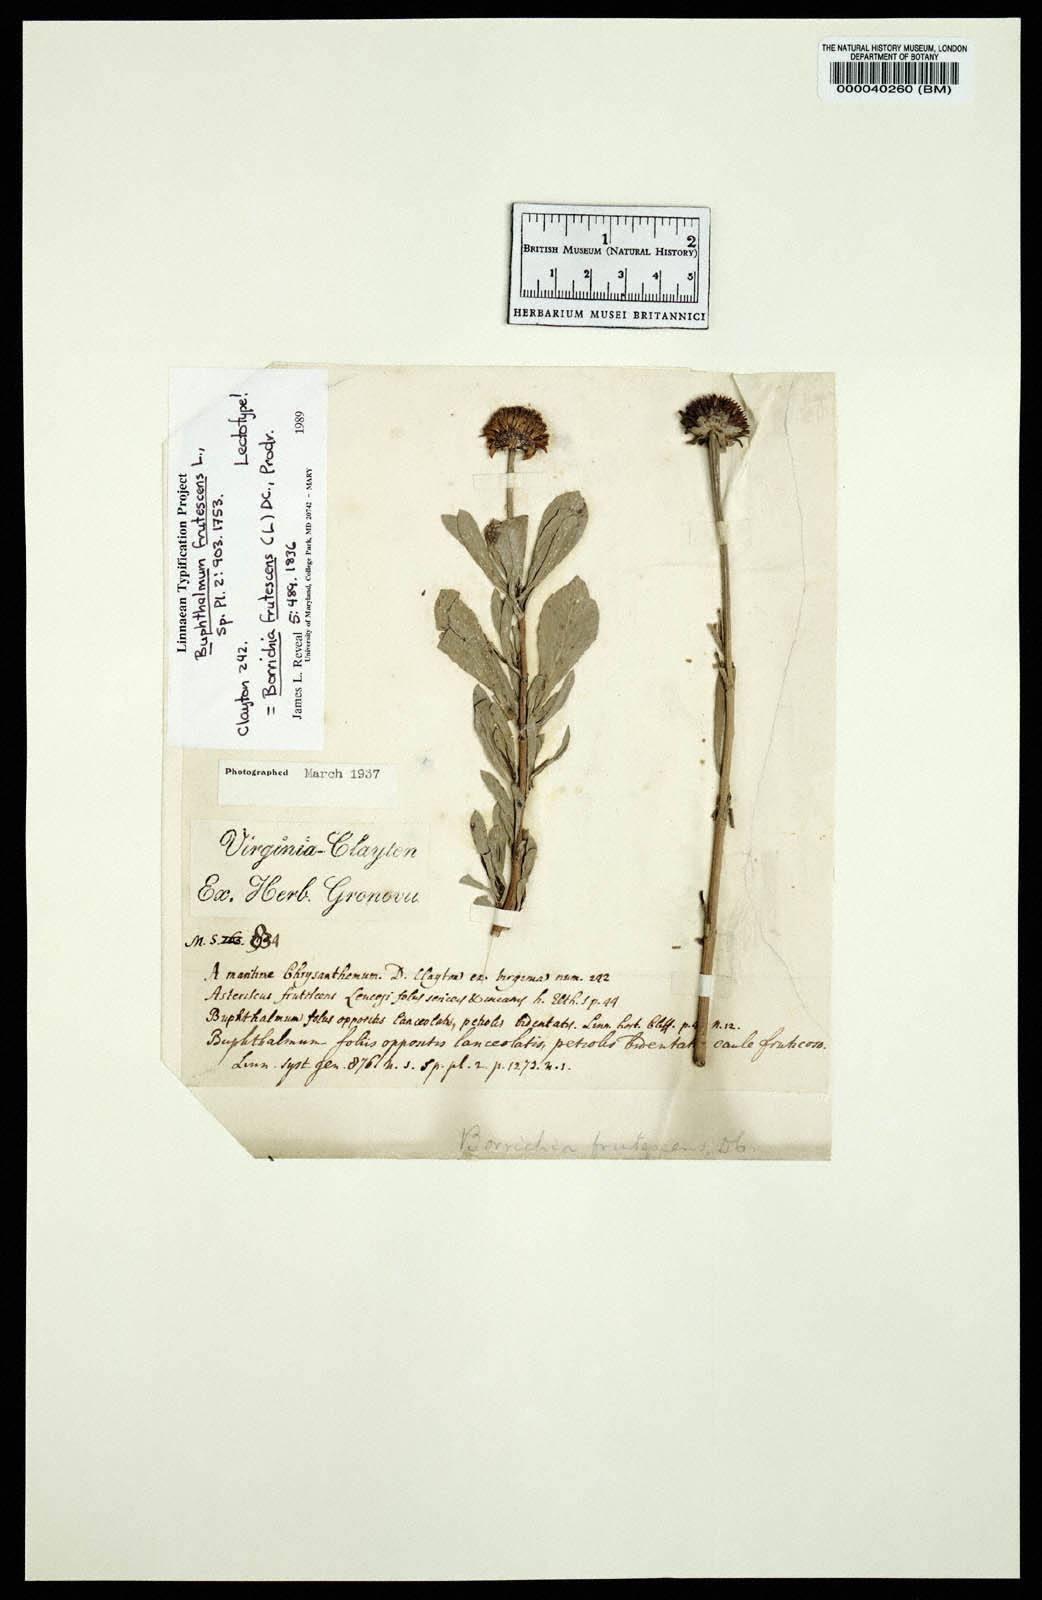 THE NATURAL HISTORY MUSEUM, LONDON
DEPARTMENT OF BOTANY
000040260 (BM)
1 2
BRITISH MUSEUM (NATURAL HISTORY)
1 2 3 4 5
HERBARIUM MUSEI BRITANNICI
Linnaean Typification Project
Buphthalmum frutescens L.,
Sp. Pl. 2: 903. 1753.
Clayton 242. Lectotype!
= Borrichia frutescens (L.) DC., Prodr.
5: 489. 1836
James L. Reveal 1989
University of Maryland, College Park, MD 20742 – MARY
Photographed March 1937
Virginia-Clayton
Ex. Herb. Gronovii
M. S. 834
A maritine Chrysanthemum. D. Clayton ex virginia num. 242
Asteriscus frutescens Leucoji foliis sericeis & incanis h. Elth. p. 44
Buphthalmum foliis oppositis lanceolatis, petiolis bidentatis. Linn. hort. Cliff. p. n. 12.
Buphthalmum foliis oppositis lanceolatis, petiolis bidentat caule fruticoso.
Linn. syst. gen. 876. n. 1. Sp. pl. 2 p. 1273. n. 1.
Borrichia frutescens, DC.